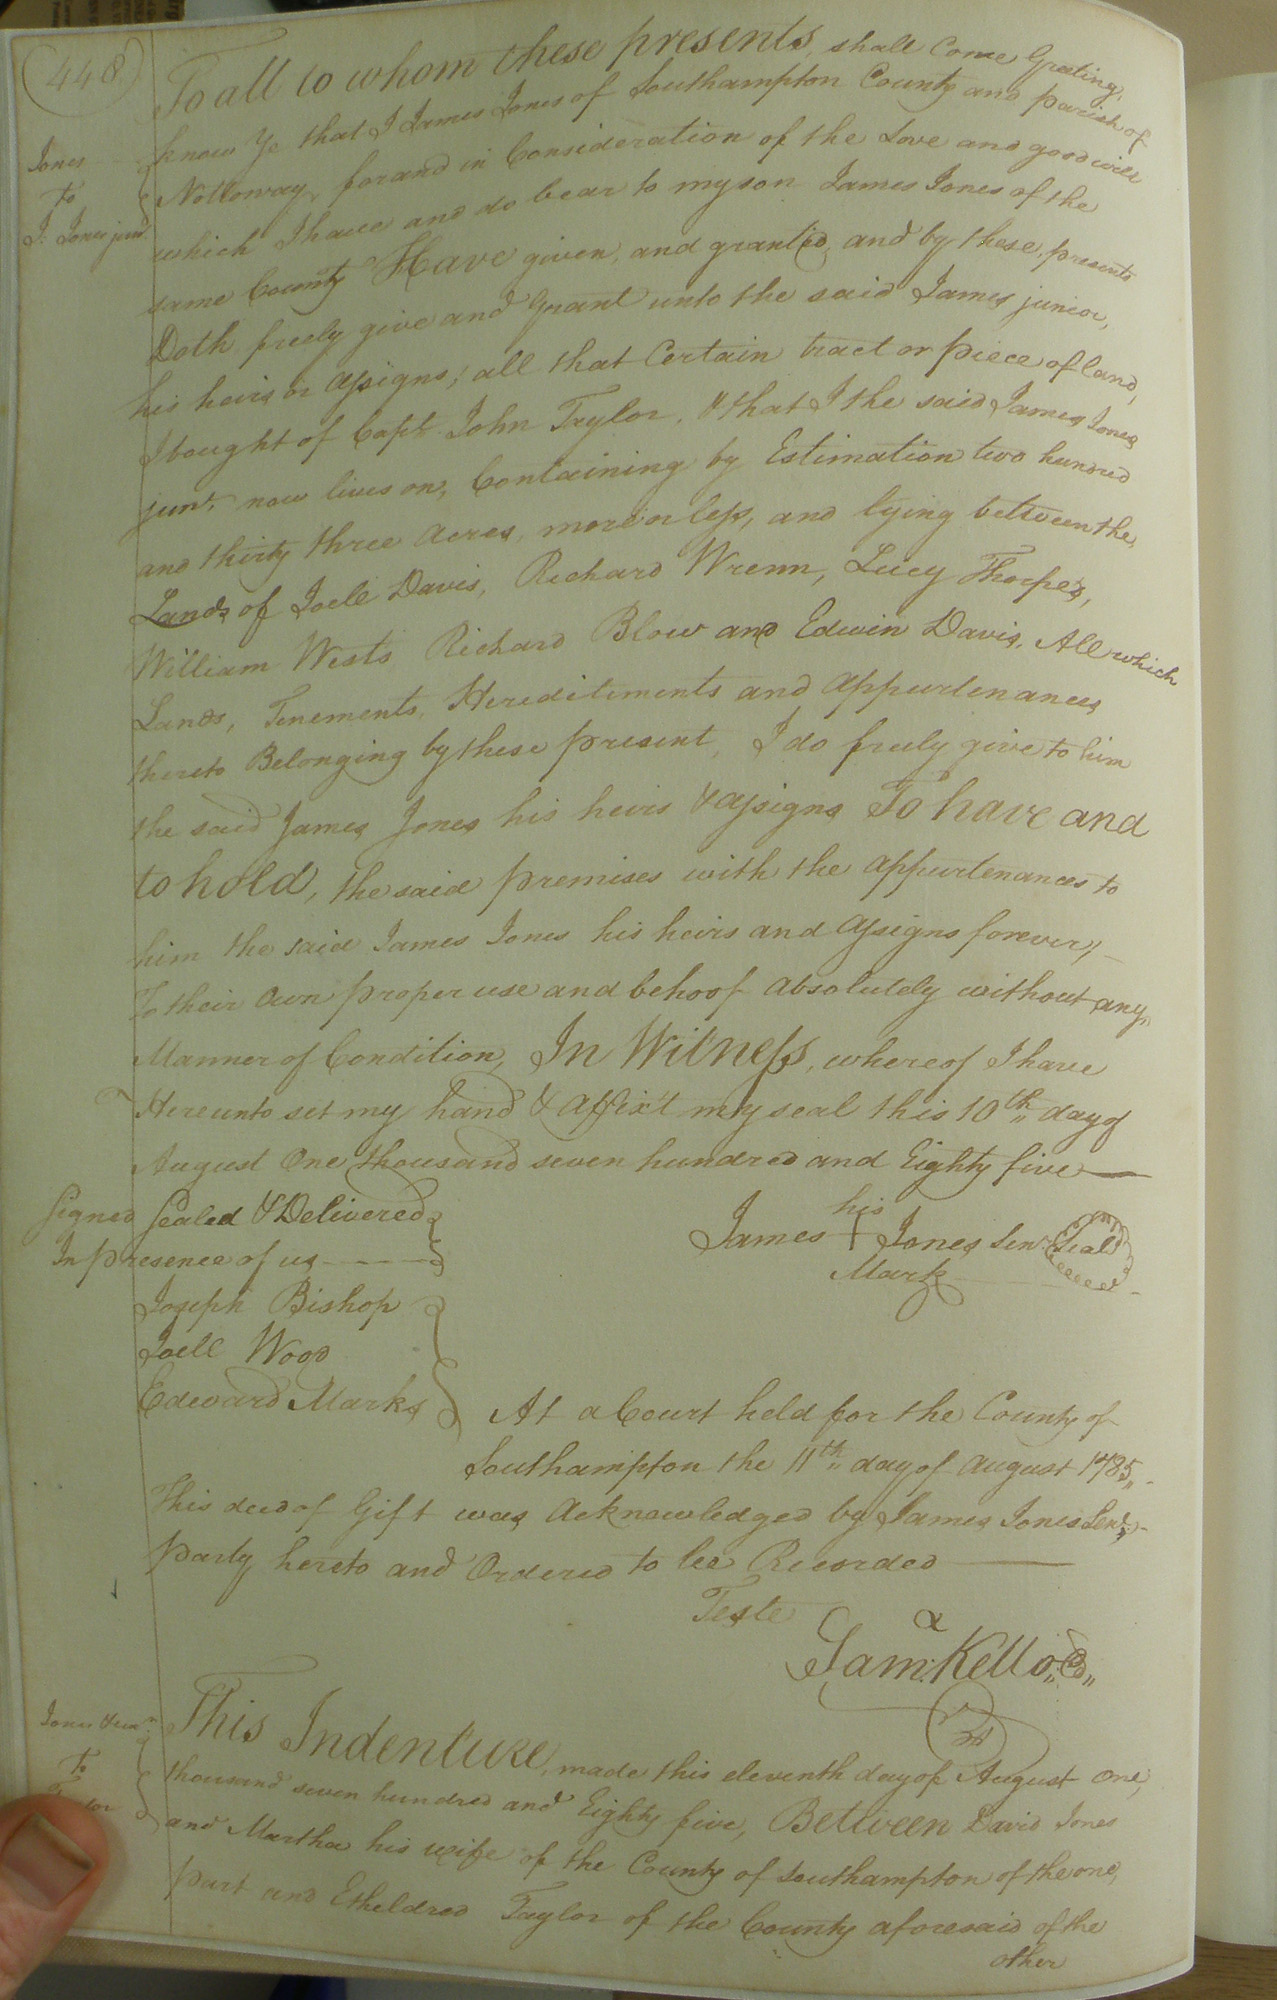 448
To all to whom these presents, shall Come Greeting,
Jones
to
J. Jones junr.
know Ye that I James Jones of Southampton County and parish of
Nottoway, for and in Consideration of the Love and good will
which I have and do bear to my son James Jones of the
same County Have given, and granted, and by these, presents
Doth freely give and Grant unto the said James junior,
his heirs or assigns; all that Certain tract or piece of land,
I bought of Capt. John Taylor, & that I the said James Jones
junr. now lives on, Containing by Estimation two hundred
and thirty three acres, more or less, and lying between the,
Lands of Joell Davis, Richard Wrenn, Lucy Thorpes,
William Wests Richard Blow and Edwin Davis, All which
Lands, Tenements, Hereditiments and Appurtenances
thereto Belonging by these present, I do freely give to him
the said James Jones his heirs & assigns To have and
to hold, the said premises with the appurtenances to
him the said James Jones his heirs and assigns forever,
To their own proper use and behoof absolutely without any,
Manner of Condition, In Witness, whereof I have
Hereunto set my hand & affix't my seal this 10th day of
August One thousand seven hundred and Eighty five
Signed Sealed & Delivered
In presence of us
his
James + Jones Senr Seal
Mark
Joseph Bishop
Joell Wood
Edward Marks
At a Court held for the County of
Southampton the 11th day of August 1785,,
This deed of Gift was Acknowledged by James Jones Senr.
Party hereto and Ordered to be Recorded
Teste
Sam: Kello,, C,,
This Indenture, made this eleventh day of August one,
Jones & ux
To
thousand seven hundred and Eighty five, Between David Jones
and Martha his wife of the County of Southampton of the one,
part and Etheldred Taylor of the County aforesaid of the
other